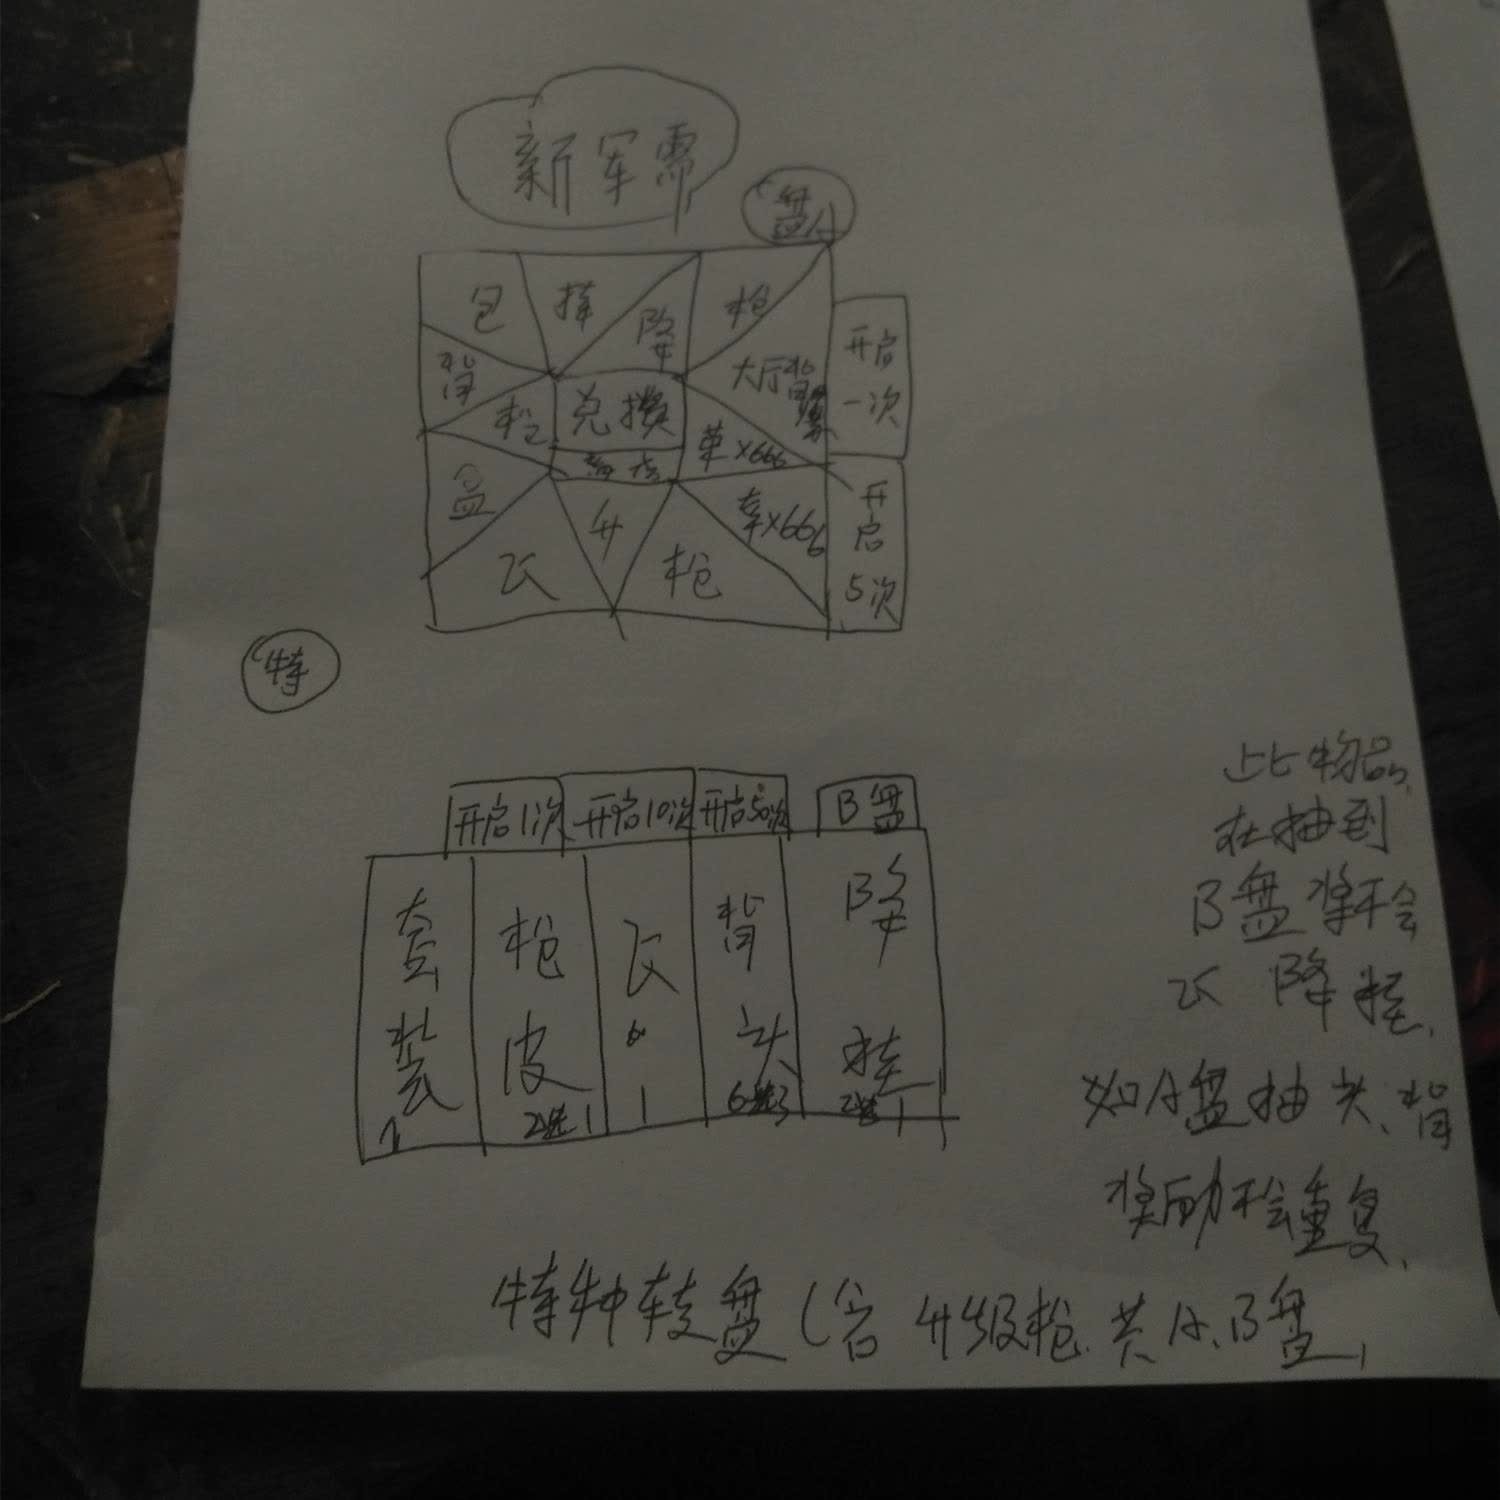 新军需
盘A
包
降
枪
背
大厅背
开启
一次
兑换
草×666
盒
升
幸×666
开
启
5次
飞
枪
特
开启1次
开启10次
开启50次
B盘
套
装
枪
皮
2选1
飞
1
背
头
6选3
降
挂
2选1
此物品
在抽到
B盘将不会
飞 降 挂
如A盘抽头、背
奖励不会重复
特种转盘(含 升级枪 共A、B盘